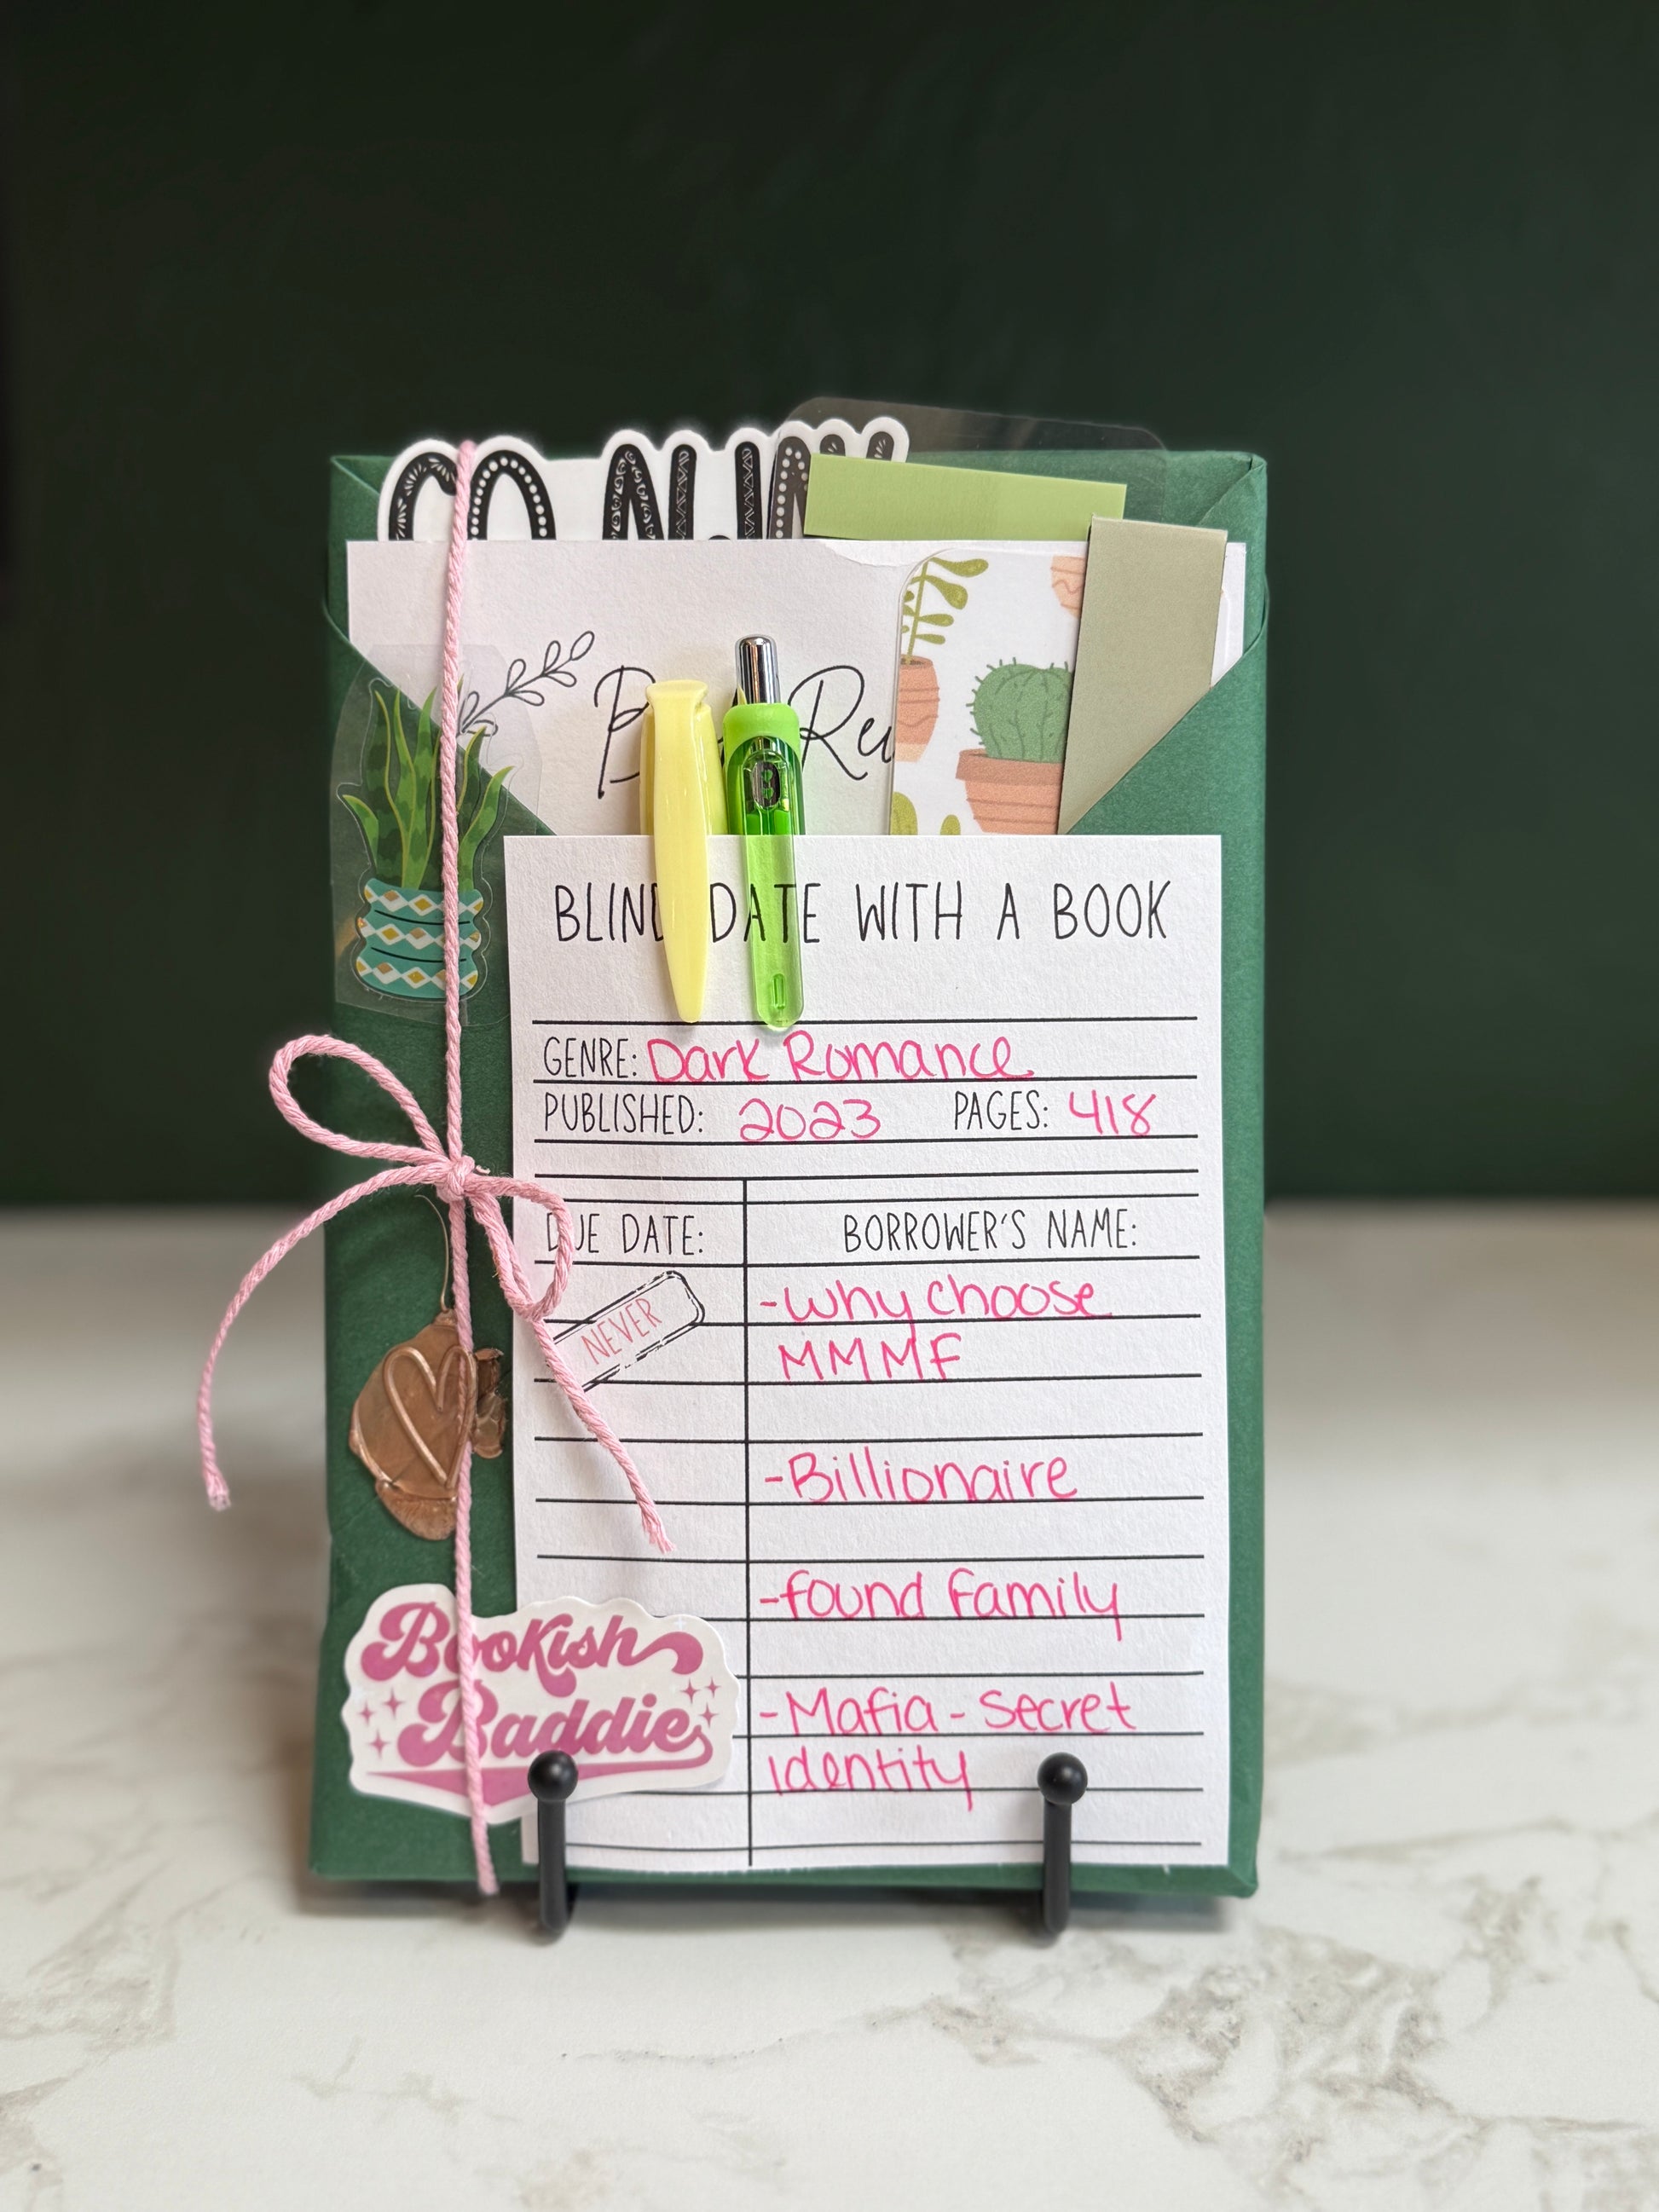 GO AWAY
B
BLIND DATE WITH A BOOK
GENRE: Dark Romance
PUBLISHED: 2023 PAGES: 418
DUE DATE: BORROWER'S NAME:
NEVER
-why choose
MMMF
-Billionaire
-found family
-Mafia - Secret
identity
Bookish
Baddie